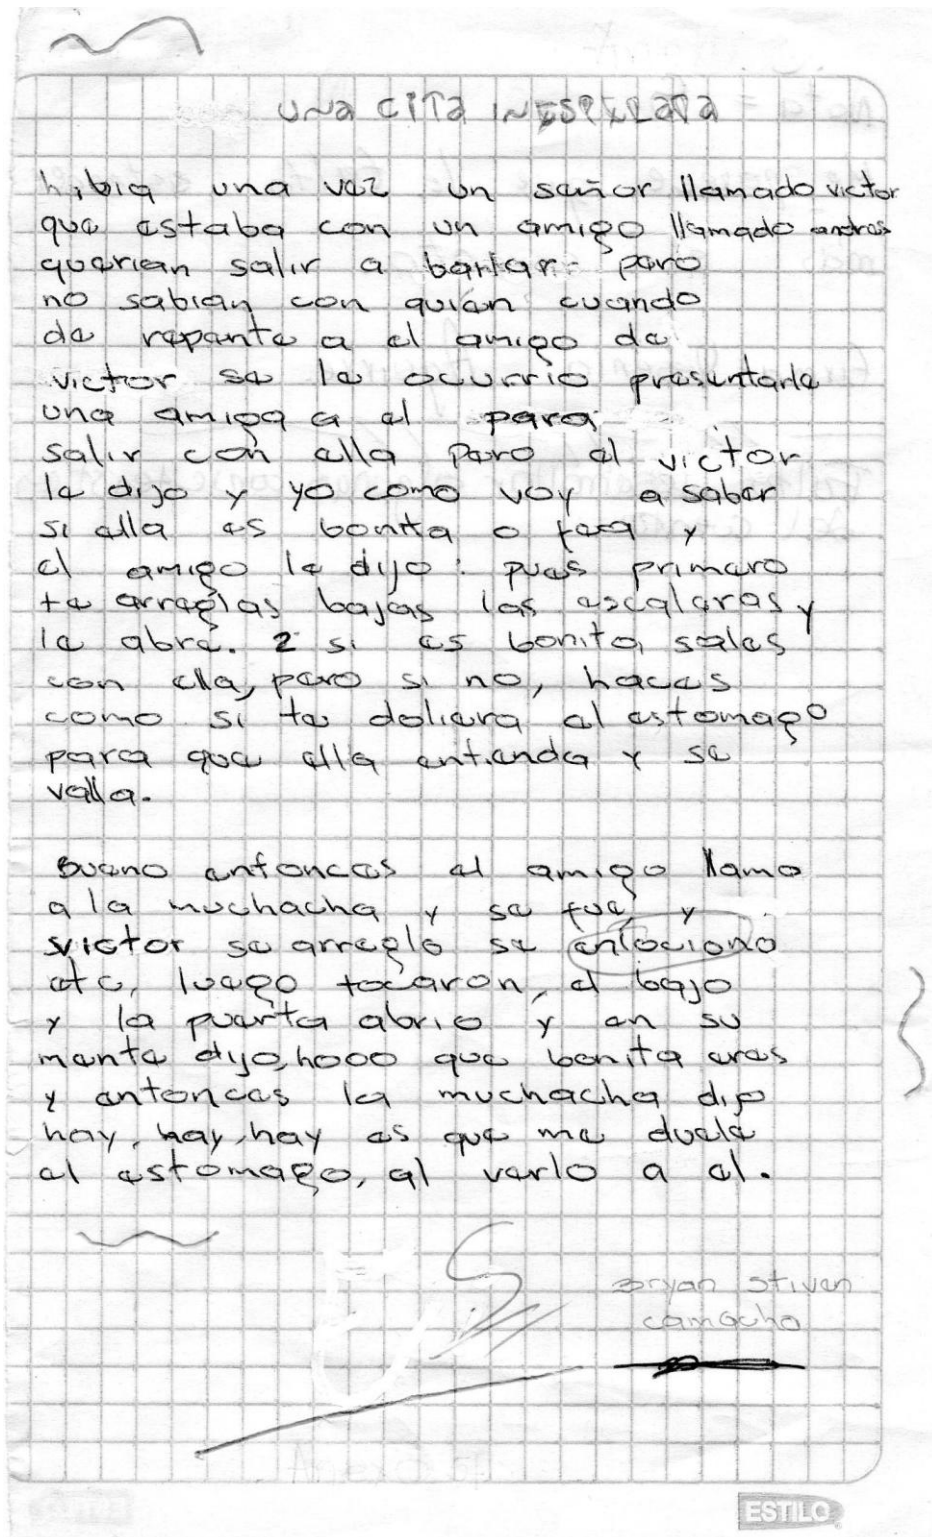 UNA CITA INESPERADA
habia una vez un señor llamado victor
que estaba con un amigo llamado andres
querian salir a bailar pero
no sabian con quien cuando
de repente a el amigo de
victor se le ocurrio presentarle
una amiga a el para
salir con ella pero el victor
le dijo y yo como voy a saber
si ella es bonita o fea y
el amigo le dijo: pues primero
te arreglas bajas las escaleras y
le abre. 2 si es bonita, sales
con ella, pero si no, haces
como si te doliera el estomago
para que ella entienda y se
valla.
Bueno entonces el amigo llamo
a la muchacha y se fue, y
victor se arreglo se enlociono
etc, luego tocaron, el bajo
y la puerta abrio y en su
mente dijo, hooo que bonita eres
y entonces la muchacha dijo
hay, hay, hay es que me duele
el estomago, al verlo a el.
Bryan Stiven
camacho
ESTILO